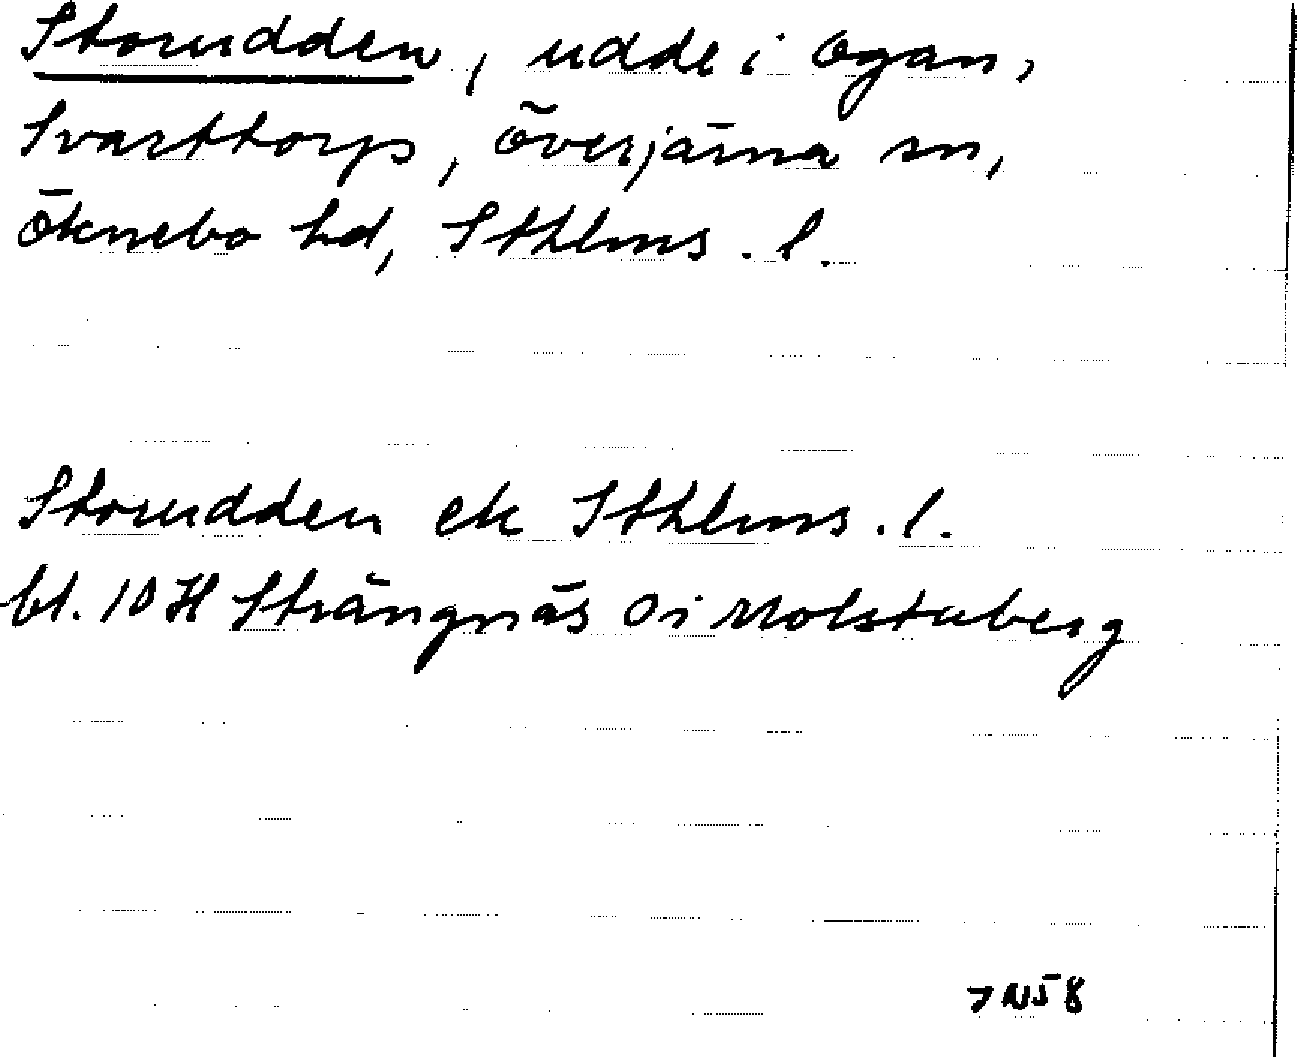 Storudden, udde i Ogan,
Svarttorp, Överjärna sn,
Öknebo hd, Sthlms. l.
Storudden ek Sthlms. l.
bl. 10 H Strängnäs Oi Molstaberg
7 NJ 8